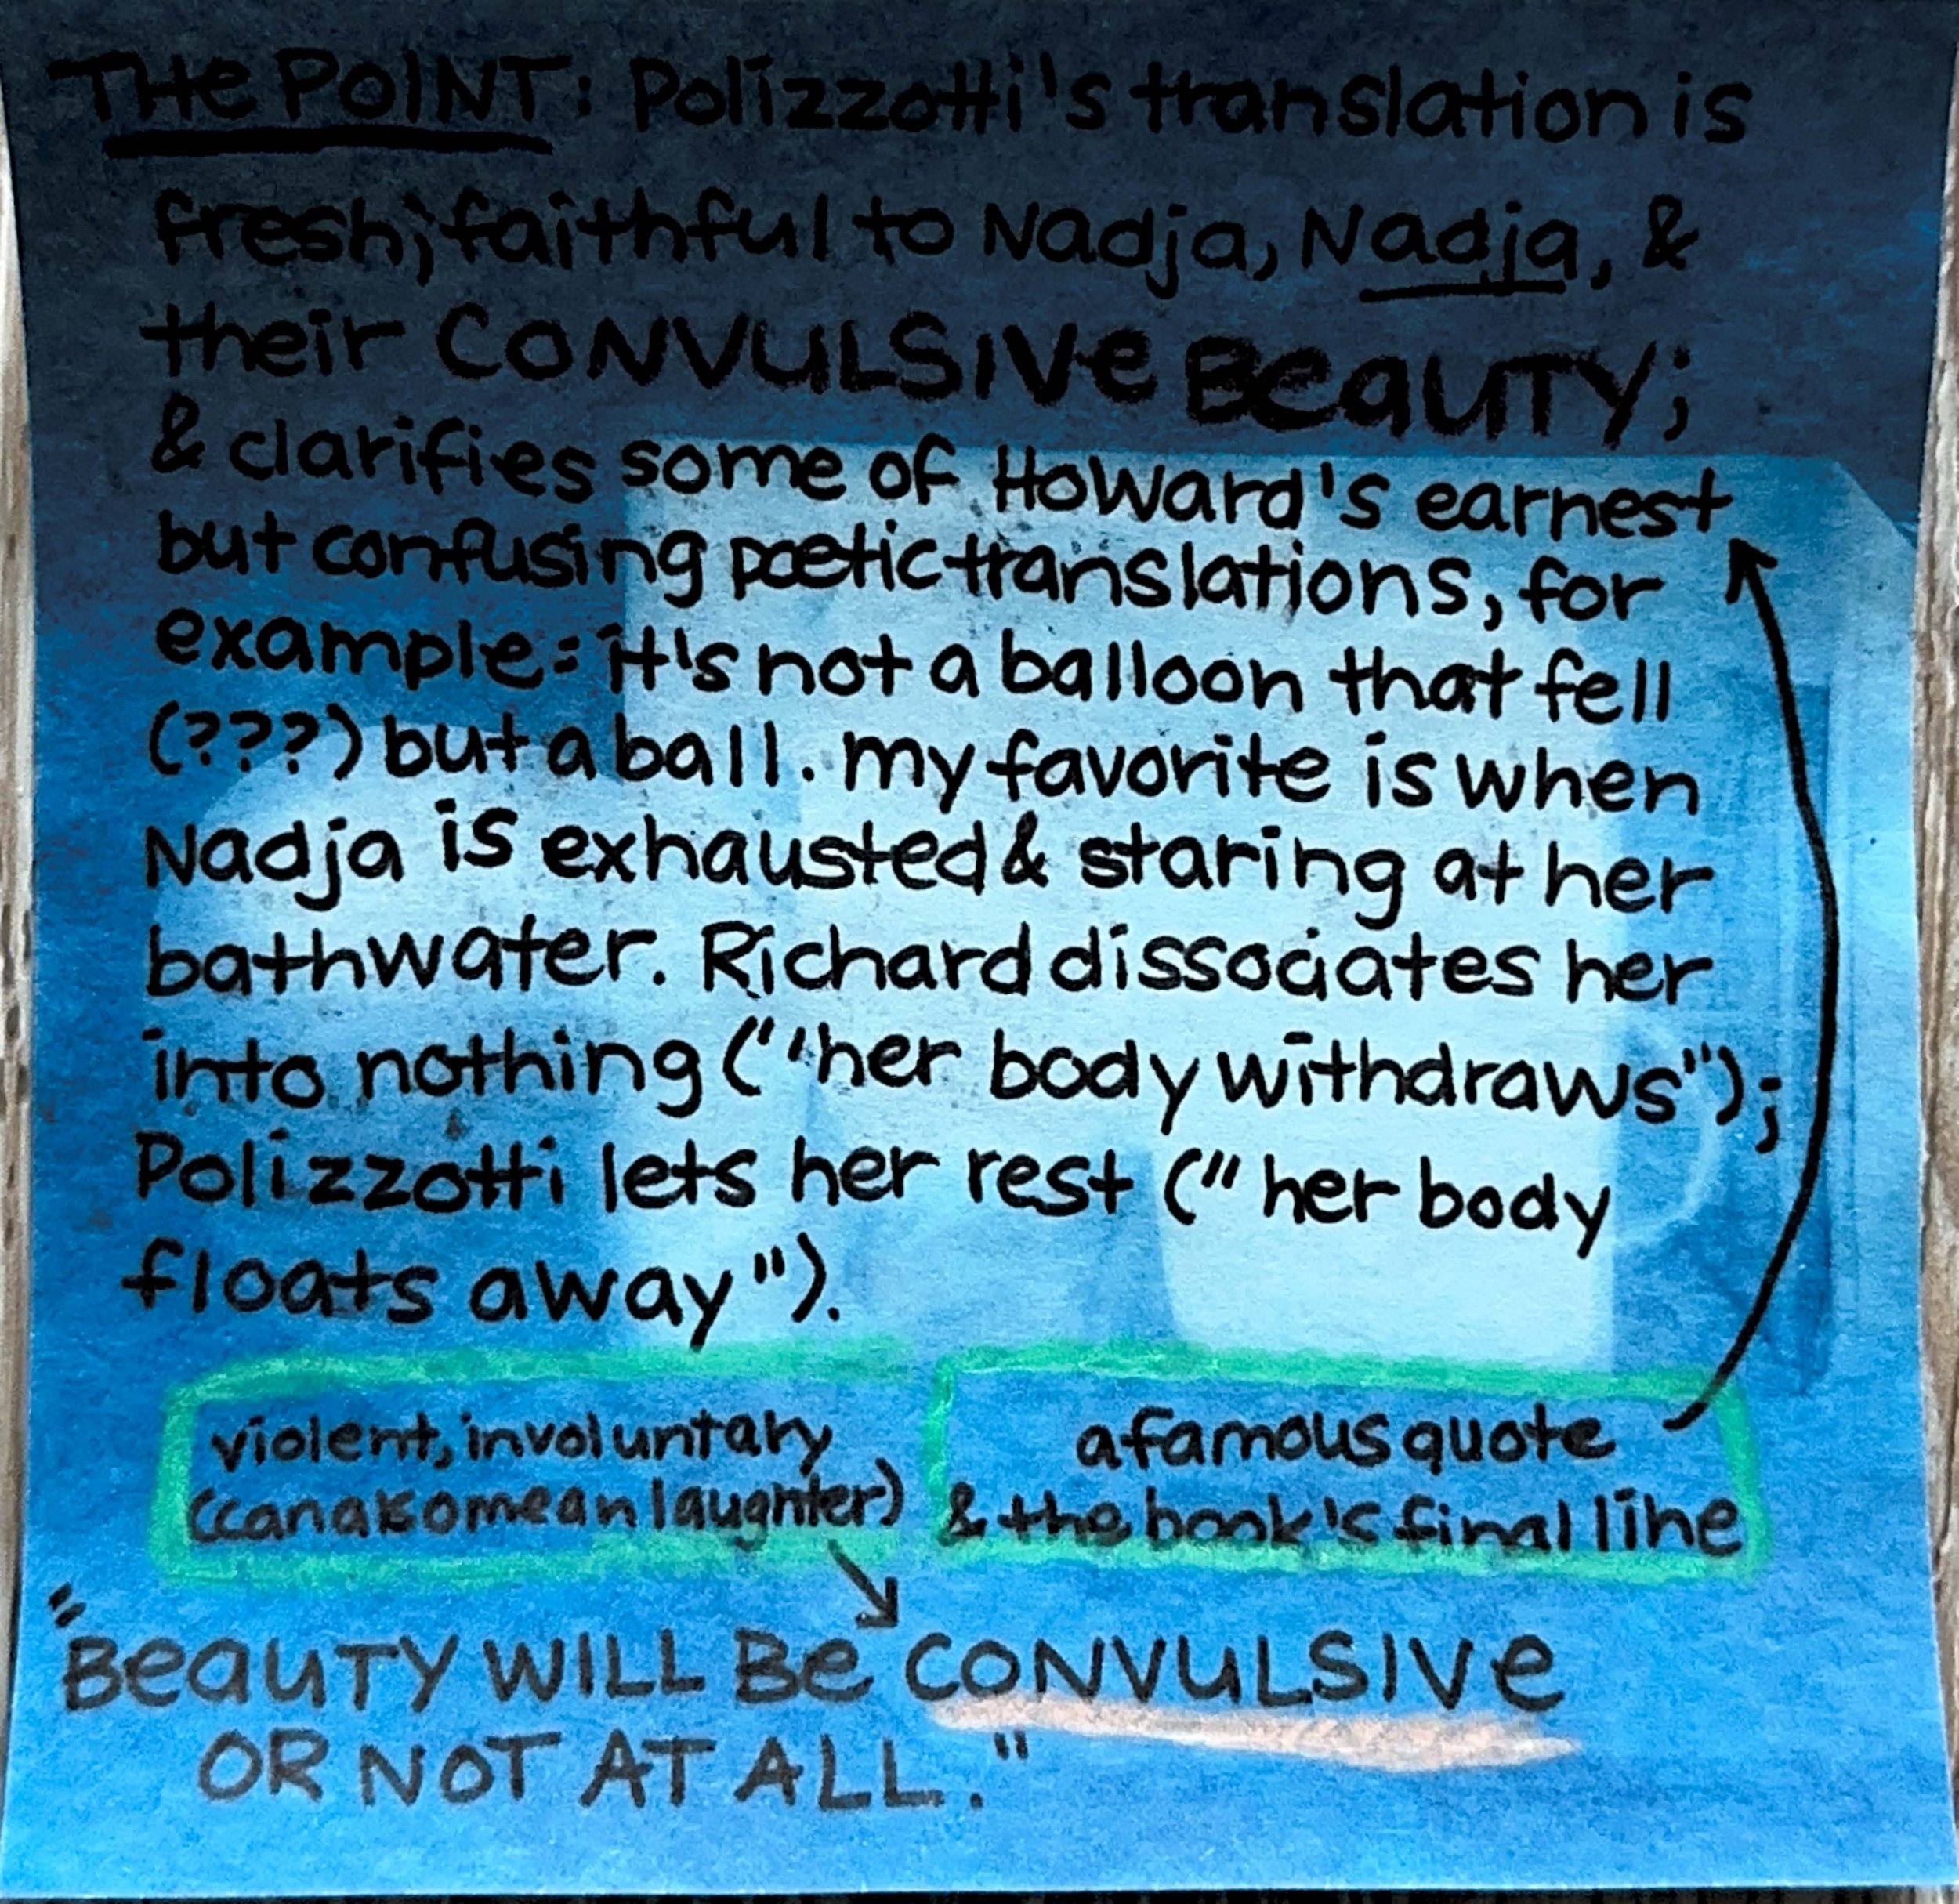 THE POINT: Polizzotti's translation is
fresh; faithful to Nadja, Nadja, &
their CONVULSIVE BEAUTY;
& clarifies some of Howard's earnest
but confusing poetic translations, for
example: it's not a balloon that fell
(???) but a ball. my favorite is when
Nadja is exhausted & staring at her
bathwater. Richard dissociates her
into nothing ("'her body withdraws");
Polizzotti lets her rest ("her body
floats away").
violent, involuntary
(can also mean laughter)
a famous quote
& the book's final line
"BEAUTY WILL BE CONVULSIVE
OR NOT AT ALL."